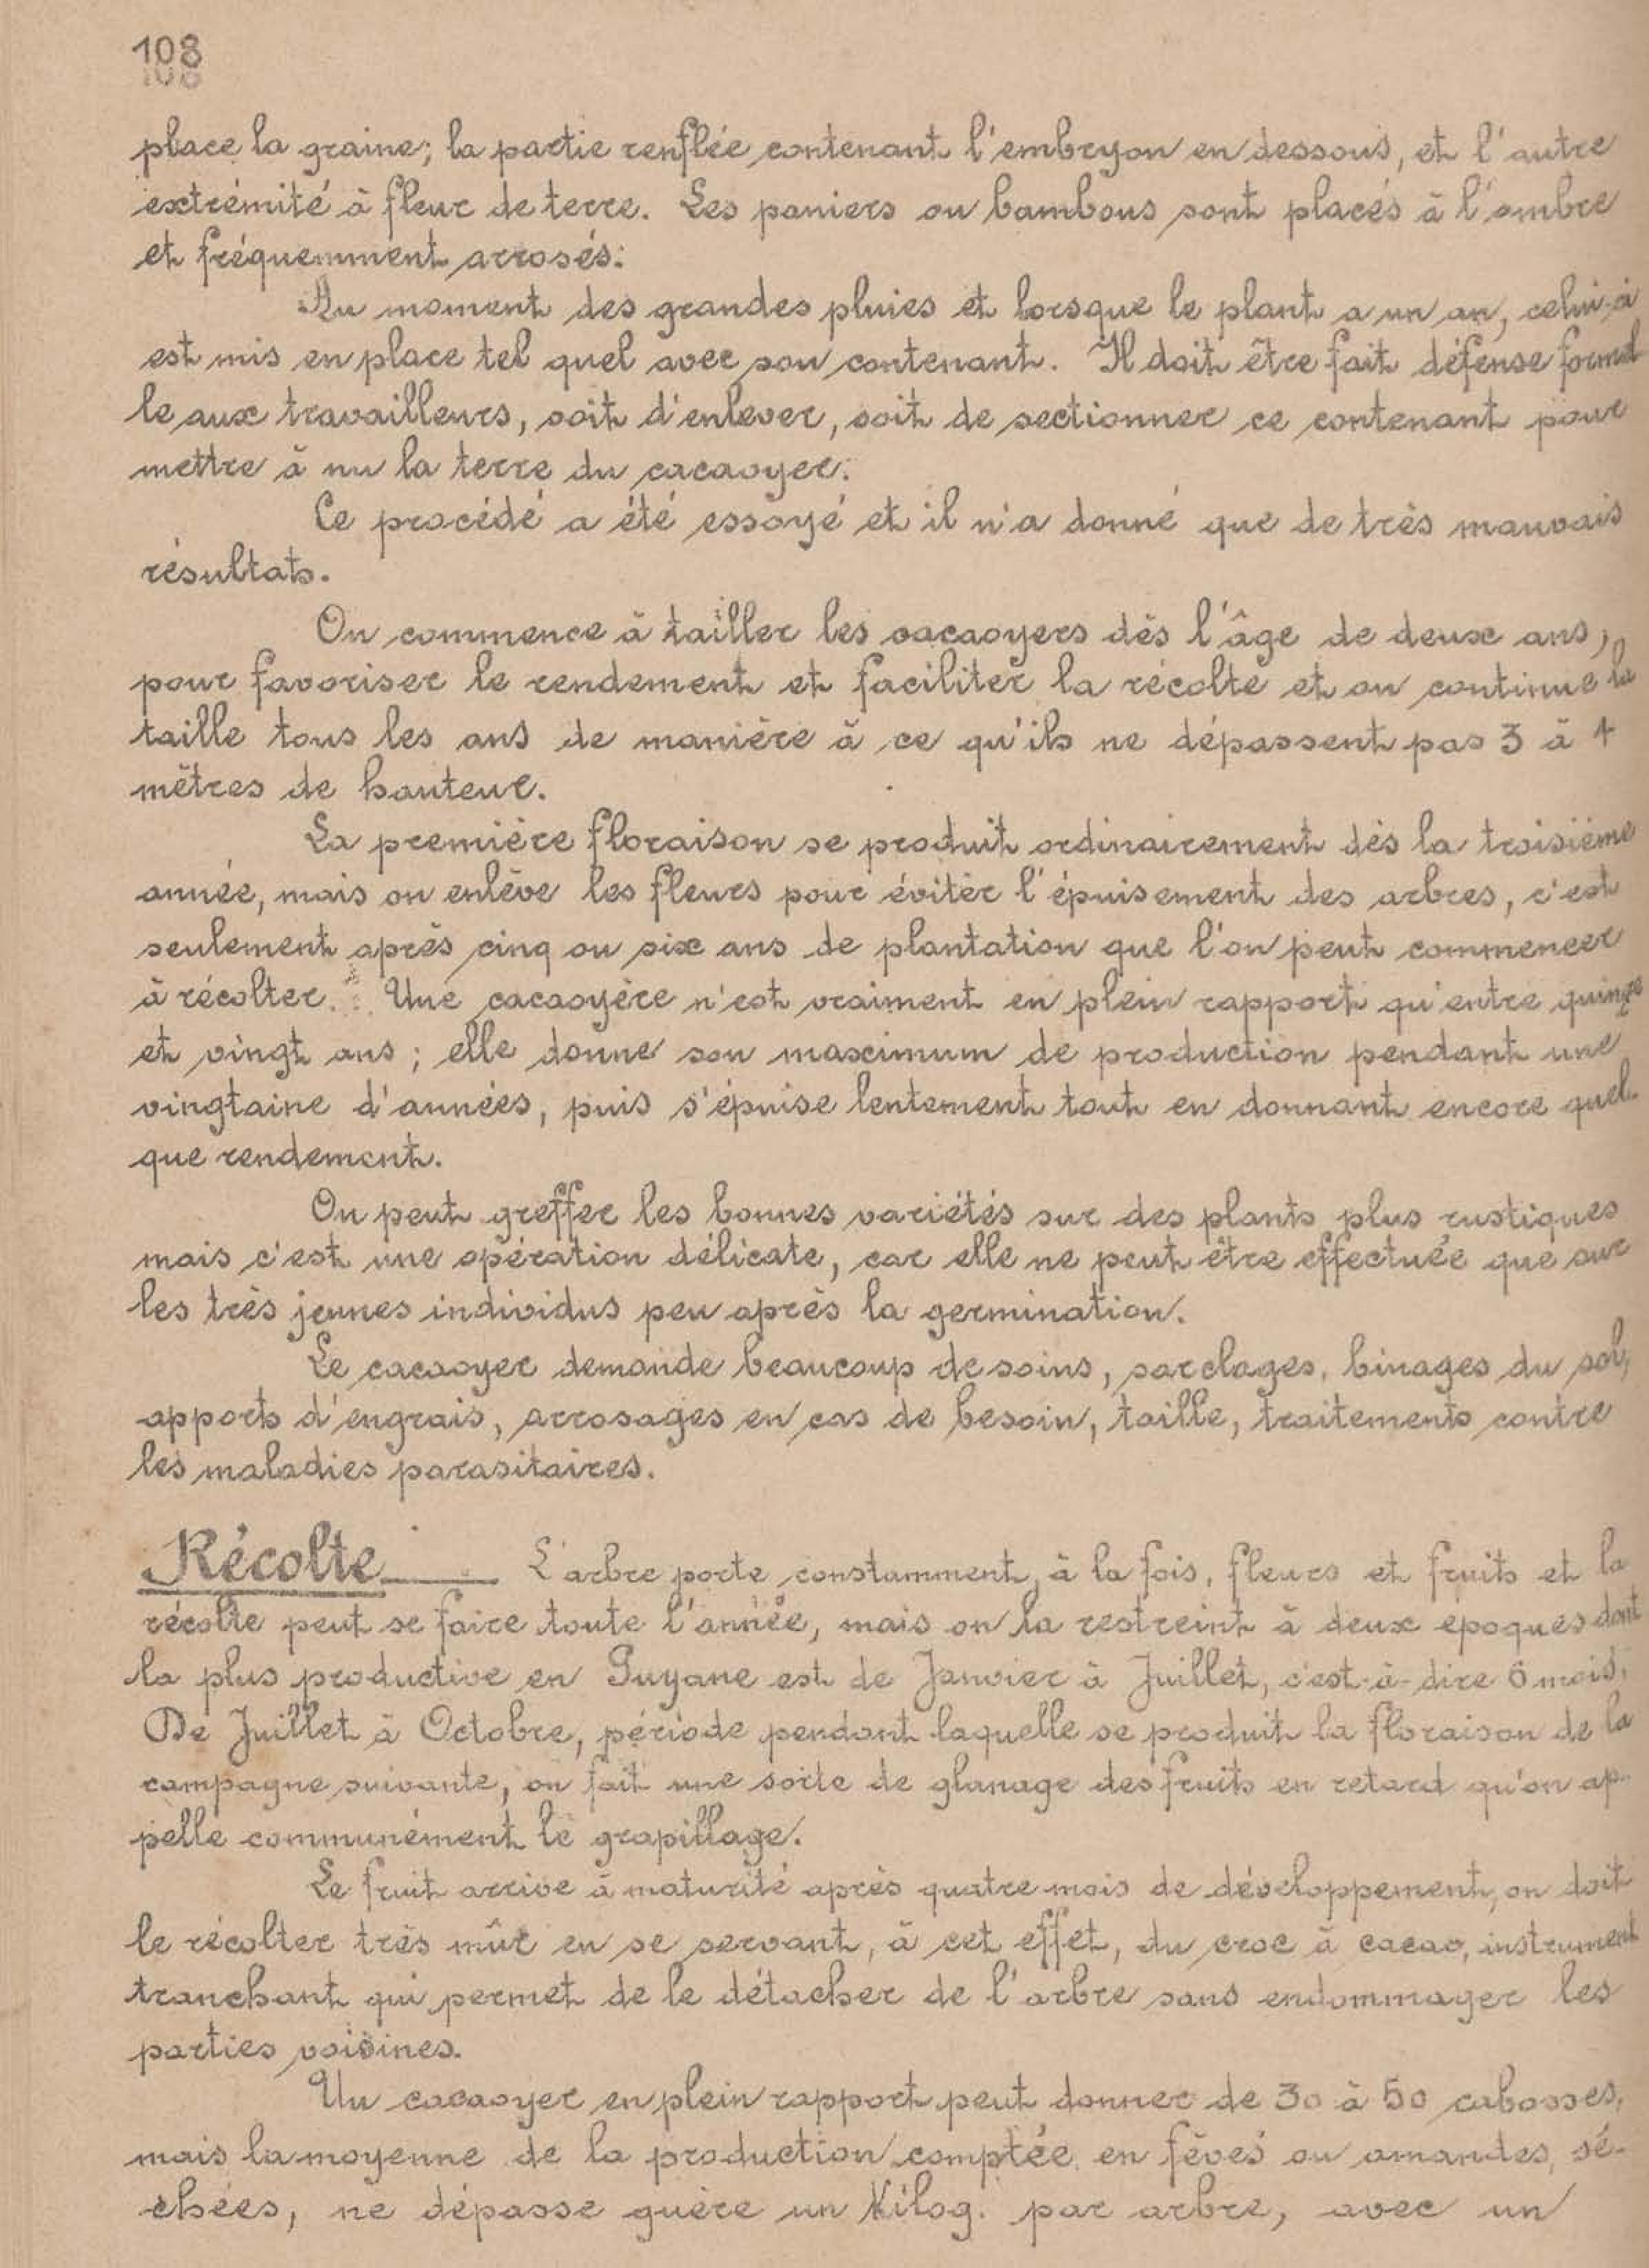 108
place la graine; la partie renflée contenant l'embryon en dessous, et l'autre
extrémité à fleur de terre. Les paniers ou bambous sont placés à l'ombre
et fréquemment arrosés.
Au moment des grandes pluies et lorsque le plant a un an, celui-ci
est mis en place tel quel avec son contenant. Il doit être fait défense formel
le aux travailleurs, soit d'enlever, soit de sectionner ce contenant pour
mettre à nu la terre du cacaoyer.
Ce procédé a été essayé et il n'a donné que de très mauvais
résultats.
On commence à tailler les cacaoyers dès l'âge de deux ans,
pour favoriser le rendement et faciliter la récolte et on continue la
taille tous les ans de manière à ce qu'ils ne dépassent pas 3 à 4
mètres de hauteur.
La première floraison se produit ordinairement dès la troisième
année, mais on enlève les fleurs pour éviter l'épuisement des arbres, c'est
seulement après cinq ou six ans de plantation que l'on peut commencer
à récolter. Une cacaoyère n'est vraiment en plein rapport qu'entre quinze
et vingt ans; elle donne son maximum de production pendant une
vingtaine d'années, puis s'épuise lentement tout en donnant encore quel-
que rendement.
On peut greffer les bonnes variétés sur des plants plus rustiques
mais c'est une opération délicate, car elle ne peut être effectuée que sur
les très jeunes individus peu après la germination.
Le cacaoyer demande beaucoup de soins, sarclages, binages du sol,
apports d'engrais, arrosages en cas de besoin, taille, traitements contre
les maladies parasitaires.
Récolte L'arbre porte constamment, à la fois, fleurs et fruits et la
récolte peut se faire toute l'année, mais on la restreint à deux époques dont
la plus productive en Guyane est de Janvier à Juillet, c'est-à-dire 6 mois.
De Juillet à Octobre, période pendant laquelle se produit la floraison de la
campagne suivante, on fait une sorte de glanage des fruits en retard qu'on ap-
pelle communément le grapillage.
Le fruit arrive à maturité après quatre mois de développement, on doit
le récolter très mûr en se servant, à cet effet, du croc à cacao, instrument
tranchant qui permet de le détacher de l'arbre sans endommager les
parties voisines.
Un cacaoyer en plein rapport peut donner de 30 à 50 cabosses,
mais la moyenne de la production comptée en fèves ou amandes, sé-
chées, ne dépasse guère un Kilog. par arbre, avec un